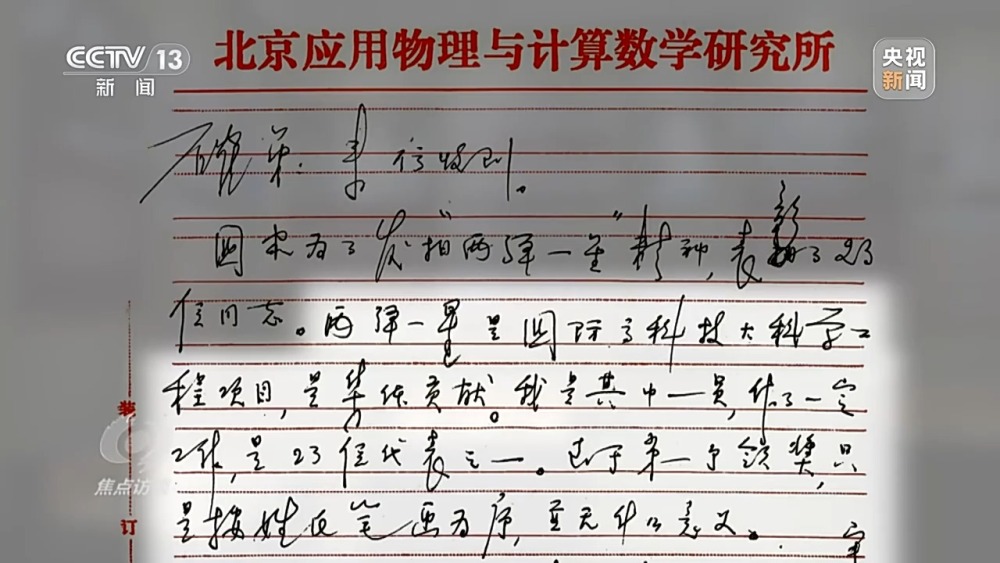 CCTV 13
新闻
北京应用物理与计算数学研究所
央视
新闻
弟：来信收到。
国家为了发扬“两弹一星”精神，表彰了23
位同志。两弹一星是国际高科技大科学工
程项目，是集体贡献。我是其中一员，做了一定
工作，是23位代表之一。至于第一个领奖，只
是按姓氏笔画为序，并无什么意义。
装
焦点访
订